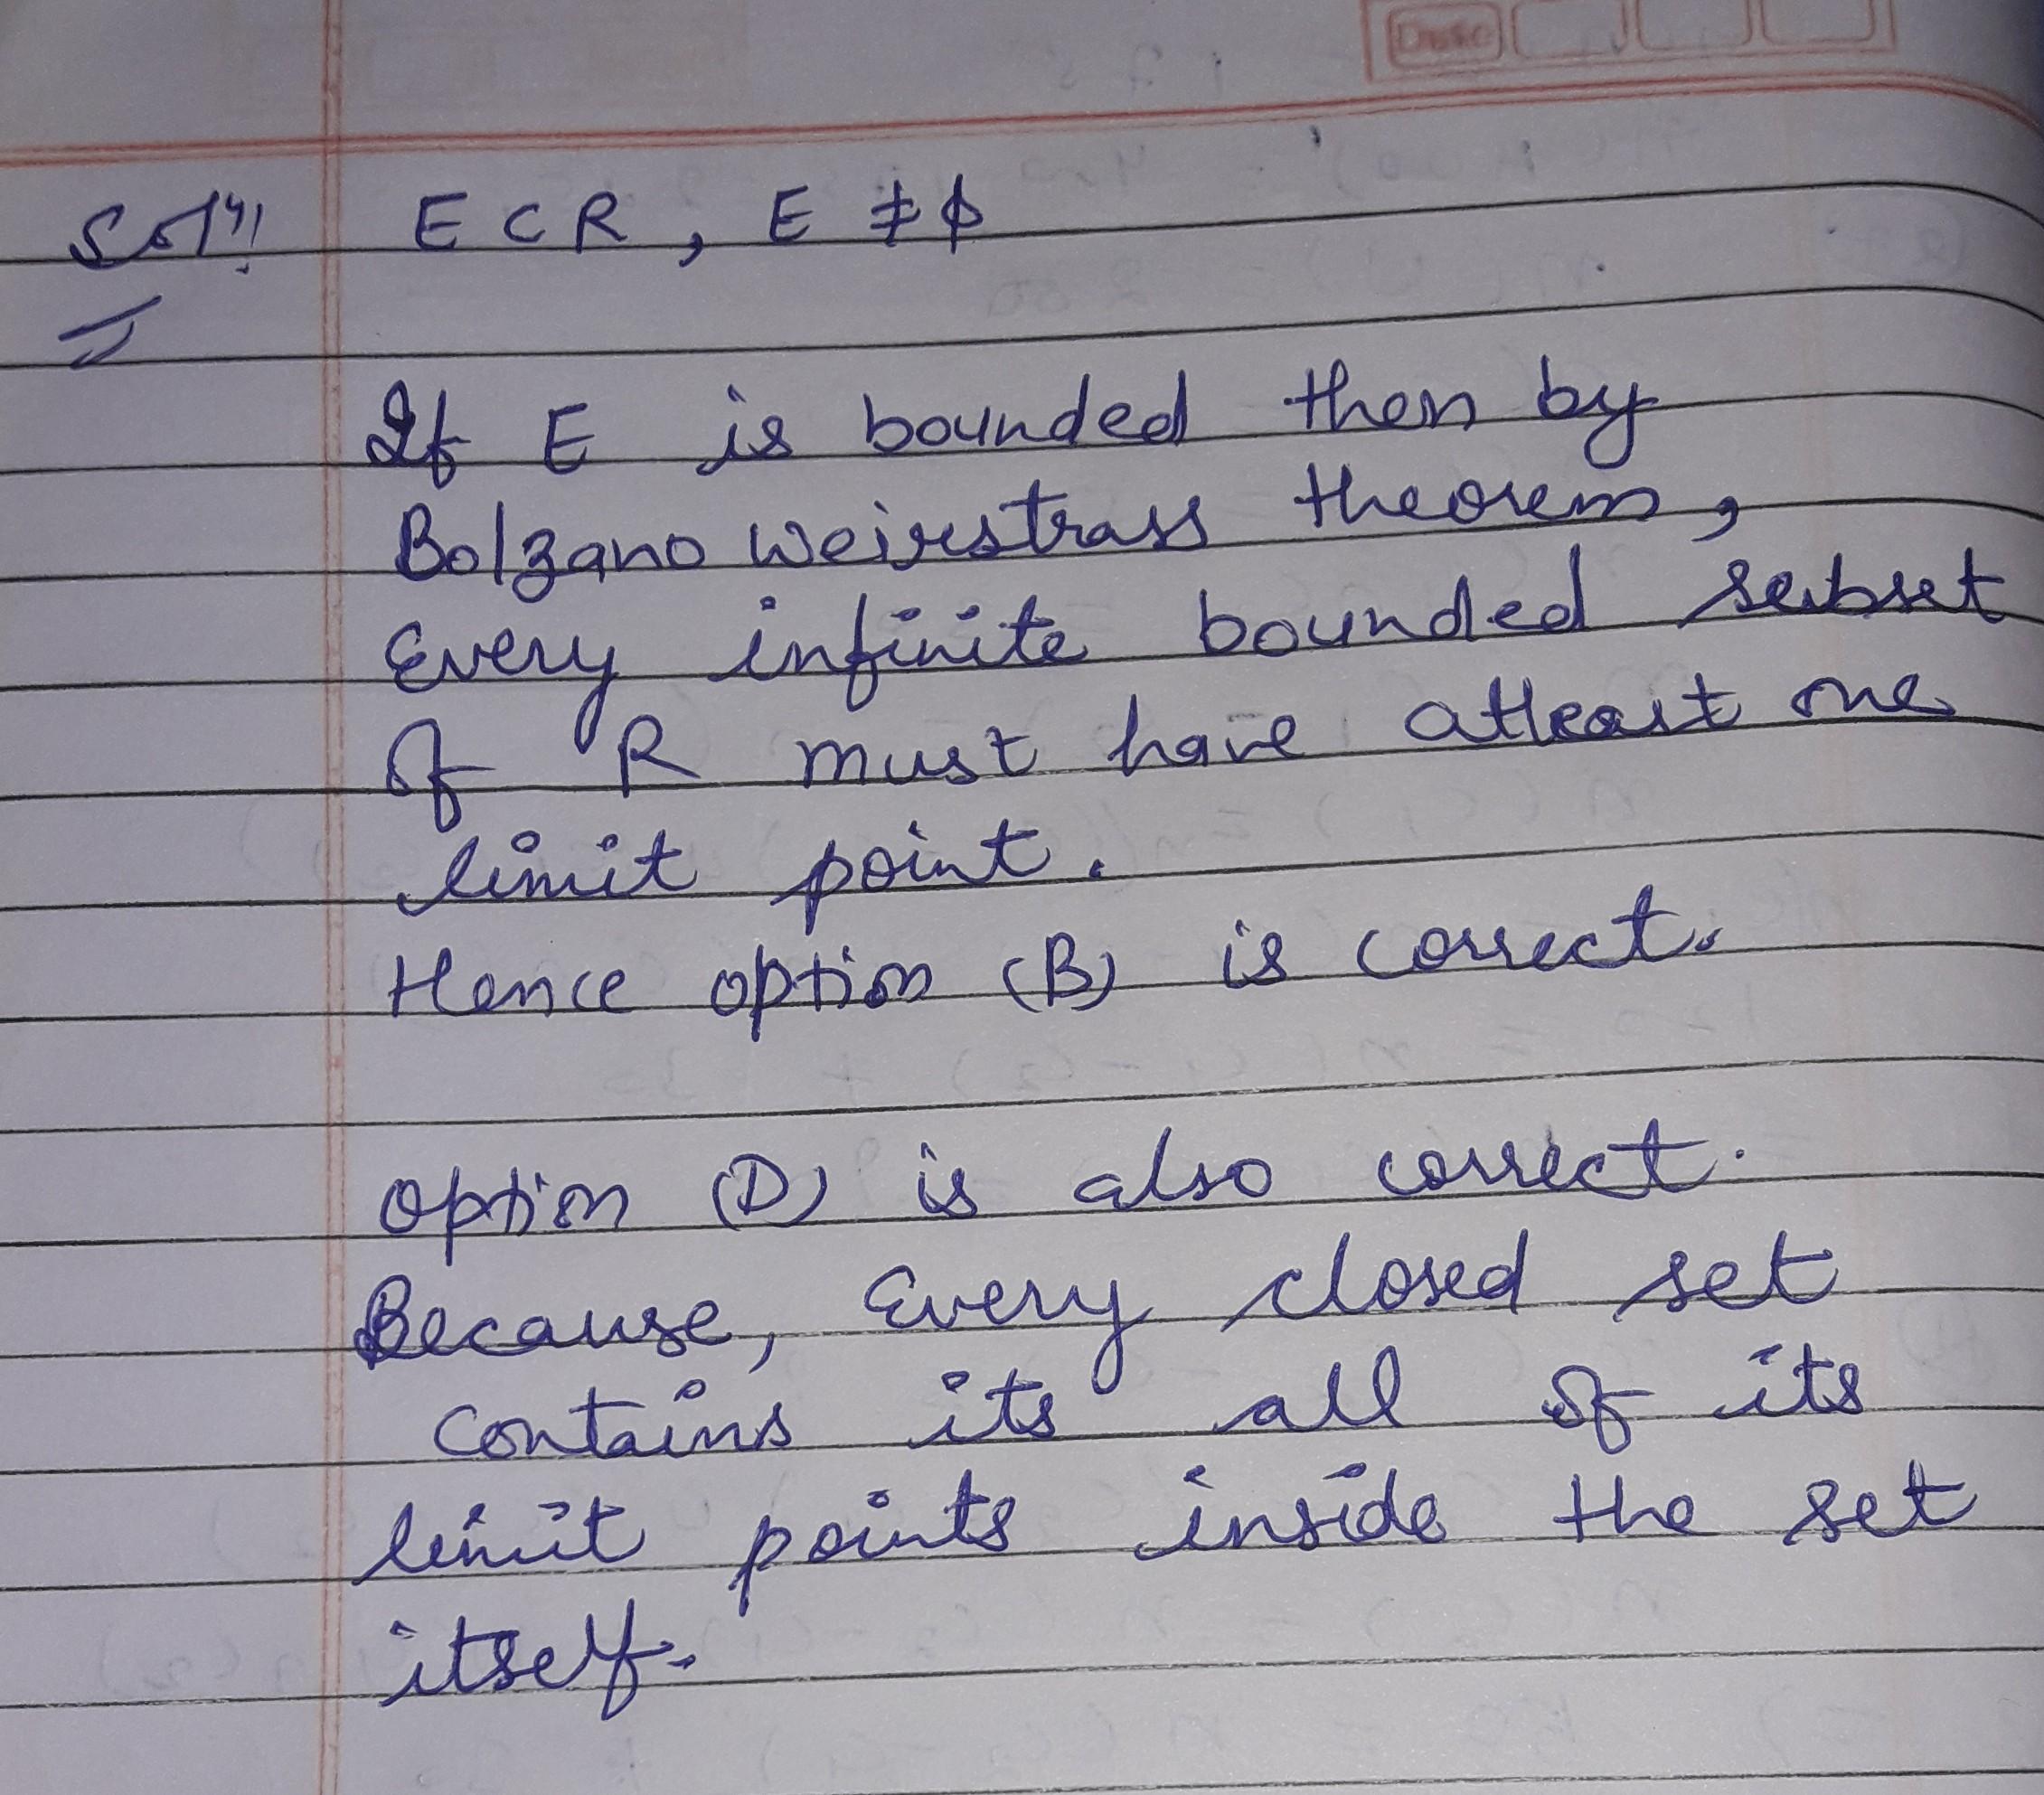 Date
Soln. E ⊂ R, E ≠ ϕ
If E is bounded then by
Bolzano weirstrass theorem,
Every infinite bounded subset
of R must have atleast one
limit point.
Hence option (B) is correct.
option (D) is also correct.
Because, Every closed set
contains its all of its
limit points inside the set
itself.